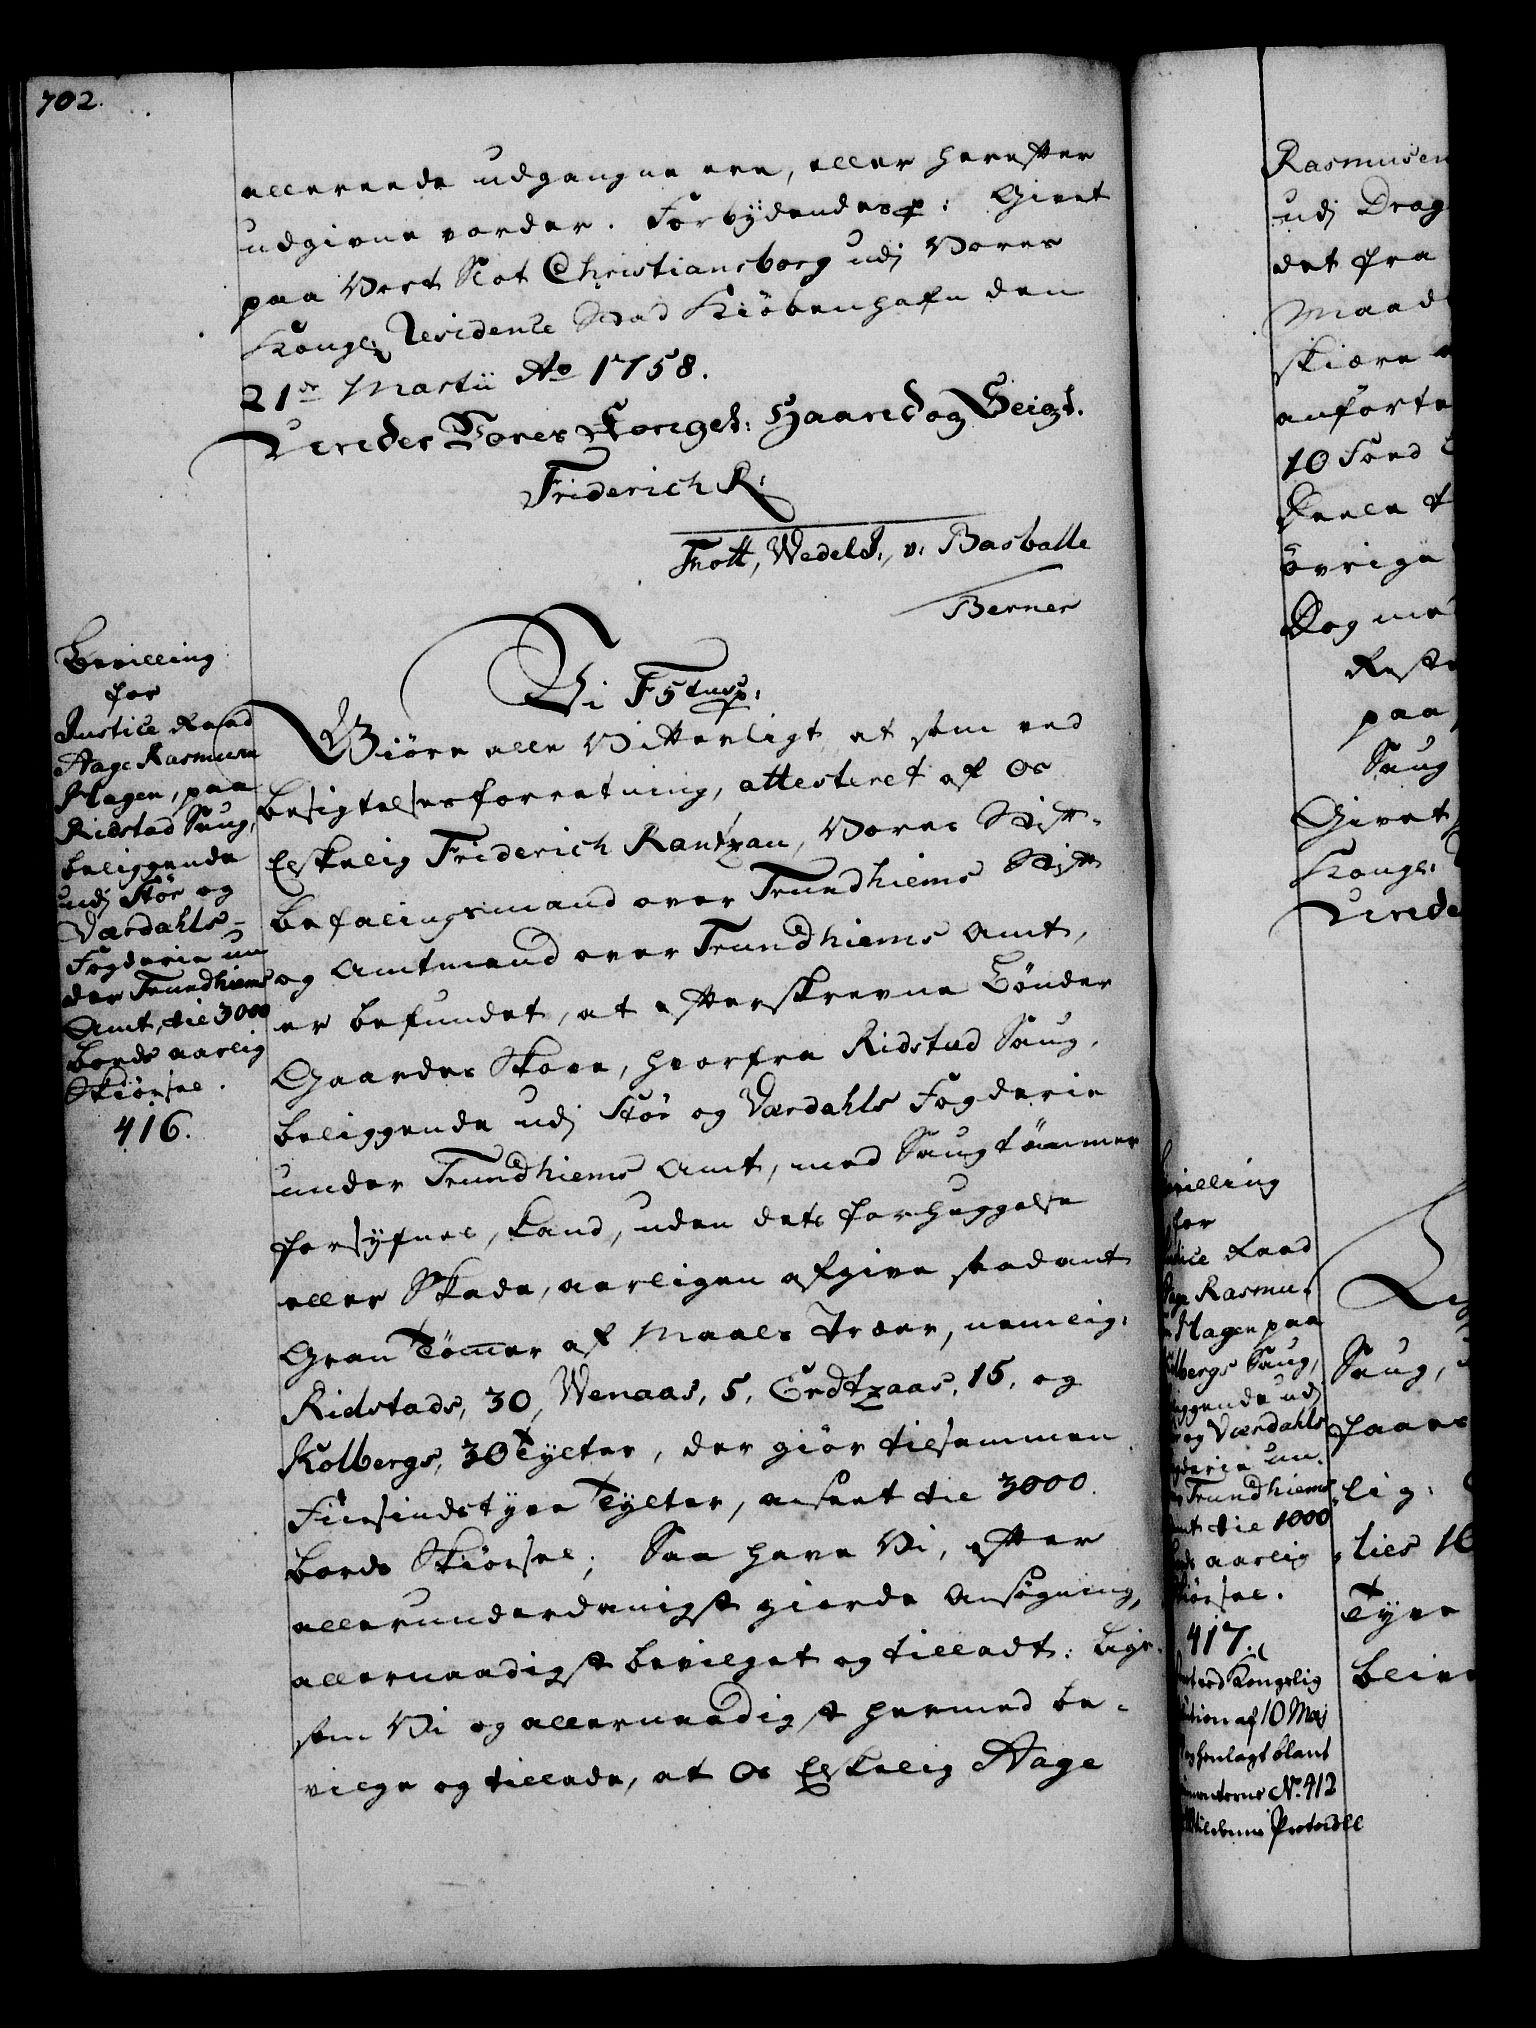 702.
allereede udgangne ere, eller herefter
udgivne vorder. Forbydendes p: Givet
paa Vort Slot Christiansborg udj Vores
Kongel Residence Stad Kiöbenhafn den
21de Martii Ao 1758.
Under Vores Kongel: Haand og Seigl.
Friderich R:
Thott, Wedels:, v: Basballe
Berner
Bevilling
for
Justice Raad
Aage Rasmusen
Hagen, paa
Ridstad Saug,
beliggende
udj Stör og
Værdahls-
Fogderie un
der Trundhiems
Amt, til 3000
Bords aarlig
Skiörsel.
416.
Vi F5tus p:
Giöre alle Vitterligt, at som ved
besigtelsesforretning, attesteret af Os
Elskelig Friderich Rantzau, Vores Stift-
befalingsmand over Trundhiems Stift
og Amtmand over Trundhiems Amt,
er befundet, at efterskrevne Bönder
Gaardes Skove, hvorfra Ridstad Saug,
beliggende udj Stör og Værdahls Fogderie
under Trundhiems Amt, med Saugtömmer
forsyfnes, kand, uden dets forhuggelse
eller Skade, aarligen afgive saadant
Gran Tömer af Maals Træer, nemlig:
Ridstads, 30, Wenaas, 5, Erdtzaas, 15, og
Kolbergs, 30 Tylter, der giör tilsammen
Fiirsindstyve Tylter, ansent til 3000
Bords Skiörsel; Saa have Vi, efter
allerunderdanigst giorde Ansögning,
allernaadigst bevilget og tilladt: Lige-
som Vi og allernaadigst hermed be-
vilge og tillade, at Os Elskelig Aage
Rasmusen
udj Drag
det fra
Maad
skiære
anförte
10 Fond
Deele
övrige
Dog me
Reste
paa
Saug
Givet
Kongl:
Unde
villing
for
Justice Raad
Aage Rasmu-
Hagen paa
Kolbergs Saug,
beliggende udj
og Værdahls
Fogderie un-
der Trundhiems
Amt til 1000
Bords aarlig
Skiörsel.
417.
Kongelig
af 10 Maj
henlagt blant
No. 412
Protocoll
Saug,
faaes
lig:
lies 10
Tyve
blive